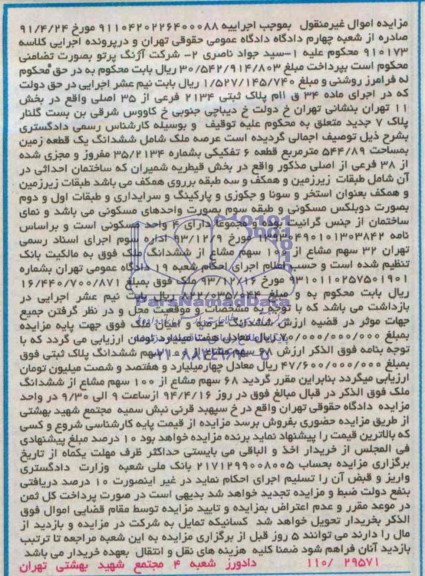 مزایده اموال غیرمنقول بموجب اجراییه ۹۱۱۰۴۲۰۲۲۶۴۰۰۰۸۸ مورخ ۹۱/۴/۲۴
صادره از شعبه چهارم دادگاه دادگاه عمومی حقوقی تهران و درپرونده اجرایی کلاسه
۹۱۰۱۷۳ محکوم علیه ۱-سید جواد ناصری ۲- شرکت آژنگ پرتو بصورت تضامنی
محکوم است بپرداخت مبلغ ۳۰/۵۴۲/۹۱۴/۸۰۳ ریال بابت محکوم به در حق محکوم
له فرامرز روشنی و مبلغ ۱/۵۲۷/۱۴۵/۷۴۰ ریال بابت نیم عشر اجرایی در حق دولت
که در اجرای ماده ۳۴ ق اام پلاک ثبتی ۲۱۳۴ فرعی از ۳۵ اصلی واقع در بخش
۱۱ تهران بنشانی تهران خ دولت خ دیباجی جنوبی خ کاووس شرقی بن بست گلنار
پلاک ۷ جدید متعلق به محکوم علیه توقیف و بوسیله کارشناس رسمی دادگستری
بشرح ذیل توصیف اجمالی گردیده است عرصه ملک شامل ششدانگ یک قطعه زمین
بمساحت ۵۴۴/۸۹ مترمربع قطعه ۶ تفکیکی بشماره ۳۵/۲۱۳۴ مفروز و مجزی شده
از ۳۸ فرعی از اصلی مذکور واقع در بخش قیطریه شمیران که ساختمان احداثی در
آن شامل طبقات زیرزمین و همکف و سه طبقه برروی همکف می باشد طبقات زیرزمین
و همکف بعنوان استخر و سونا و جکوزی و پارکینگ و سرایداری و طبقات اول و دوم
بصورت دوبلکس مسکونی و طبقه سوم بصورت واحدهای مسکونی می باشد و نمای
ساختمان از جنس گرانیت بوده و مجموعا دارای واحد مسکونی است و براساس
نامه مورخ ۹۳/۱۲/۹ اداره سوم اجرای اسناد رسمی
تهران ۳۲ سهم مشاع از ۱۰۰ سهم مشاع از ششدانگ ملک فوق به مالکیت بانک
تنظیم شده است و حسب اعلام اجرای احکام شعبه ۱۹ دادگاه عمومی تهران بشماره
مورخ ۹۳/۱۲/۱۶ ملک فوق بمبلغ ۱۶/۴۴۰/۷۰۰/۸۷۱
ریال بابت محکوم به و مبلغ ریال بابت نیم عشر اجرایی در
بازداشت می باشد که با توجه به مشخصات و موقعیت محل و در نظر گرفتن جمیع
جهات موثر در قضیه ارزش ششدانگ عرصه و اعیان ملک فوق جهت پایه مزایده
بمبلغ ۷۰/۰۰۰/۰۰۰/۰۰۰ ریال معادل هفت میلیارد تومان ارزیابی می گردد که با
توجه بنامه فوق الذکر ارزش ۶۸ سهم مشاع از ۱۰۰ سهم ششدانگ پلاک ثبتی فوق
بمبلغ ۴۷/۶۰۰/۰۰۰/۰۰۰ ریال معادل چهارمیلیارد و هفتصد و شصت میلیون تومان
ارزیابی میگردد بنابراین مقرر گردید ۶۸ سهم مشاع از ۱۰۰ سهم مشاع از ششدانگ
ملک فوق الذکر در قبال مبالغ فوق در روز ۹۴/۴/۱۶ ازساعت ۹ الی ۹/۳۰ در واحد
مزایده دادگاه حقوقی تهران واقع در خ سپهبد قرنی نبش سمیه مجتمع شهید بهشتی
از طریق مزایده حضوری بفروش برسد مزایده از قیمت پایه کارشناسی شروع و کسی
که بالاترین قیمت را پیشنهاد نماید برنده مزایده خواهد بود ۱۰ درصد مبلغ پیشنهادی
فی المجلس از خریدار اخذ و الباقی می بایستی حداکثر ظرف مهلت یکماه از تاریخ
برگزاری مزایده بحساب ۲۱۷۱۲۹۹۰۰۸۰۰۵ بانک ملی شعبه وزارت دادگستری
واریز و قبض آن را تسلیم اجرای احکام نماید در غیر اینصورت ۱۰ درصد دریافتی
بنفع دولت ضبط و مزایده تجدید خواهد شد بدیهی است در صورت پرداخت کل ثمن
در موعد مقرر و عدم اعتراض بمزایده و تایید مزایده توسط مقام قضایی اموال فوق
الذکر بخریدار تحویل خواهد شد کسانیکه تمایل به شرکت در مزایده و بازدید از
مال را دارند می توانند ۵ روز قبل از برگزاری مزایده به این شعبه مراجعه تا ترتیب
بازدید آنان فراهم شود ضمنا کلیه هزینه های نقل و انتقال بعهده خریدار می باشد
۱۱۰/ ۲۹۵۷۱ دادورز شعبه ۴ مجتمع شهید بهشتی تهران
ParsNamadData
۰۲۱-۸۸۳۴۹۶۷۰